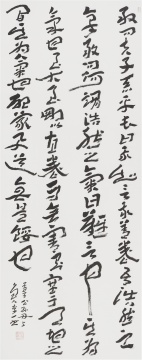 敢問夫子惡乎長曰我知言我善養吾浩然之
氣敢問何謂浩然之氣曰難言也其為
氣也至大至剛以直養而無害則塞于天地之
間其為氣也配義與道無是餒也